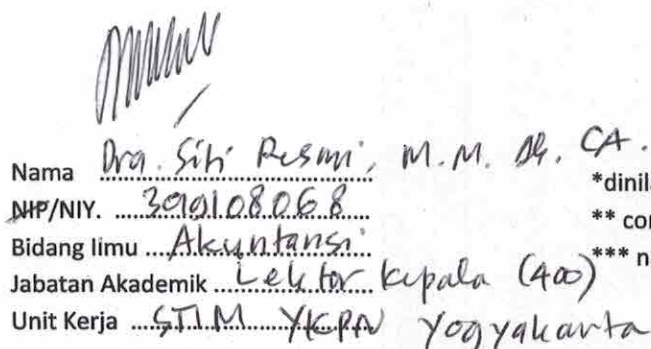 Nama Dra. Siti Resmi, M.M. Ak. CA.
*dinila
NIP/NIY. 399108068
** con
Bidang Ilmu Akuntansi
*** n
Jabatan Akademik Lektor Kepala (400)
Unit Kerja STIM YKPN Yogyakarta